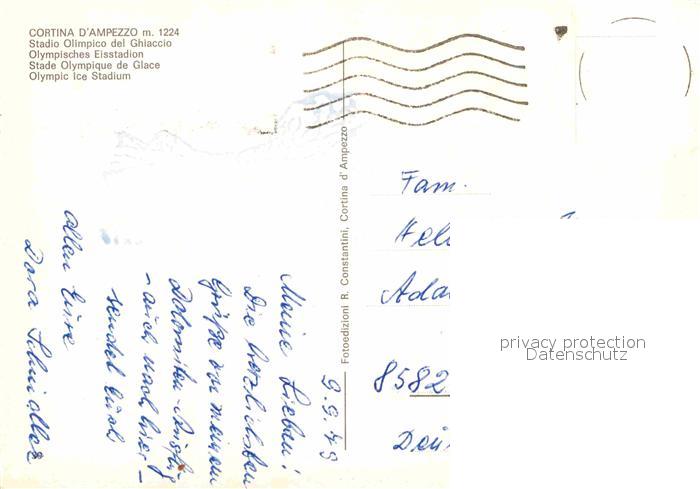 CORTINA D'AMPEZZO m. 1224
Stadio Olimpico del Ghiaccio
Olympisches Eisstadion
Stade Olympique de Glace
Olympic Ice Stadium
Fotoedizioni R. Constantini, Cortina d'Ampezzo
9.9.79
Meine Lieben!
Die herzlichsten
Grüße von meinem
Dolomiten-Ausflug
- auch nach hier -
sendet Euch
allen Eure
Dora
Fam.
8582
privacy protection
Datenschutz